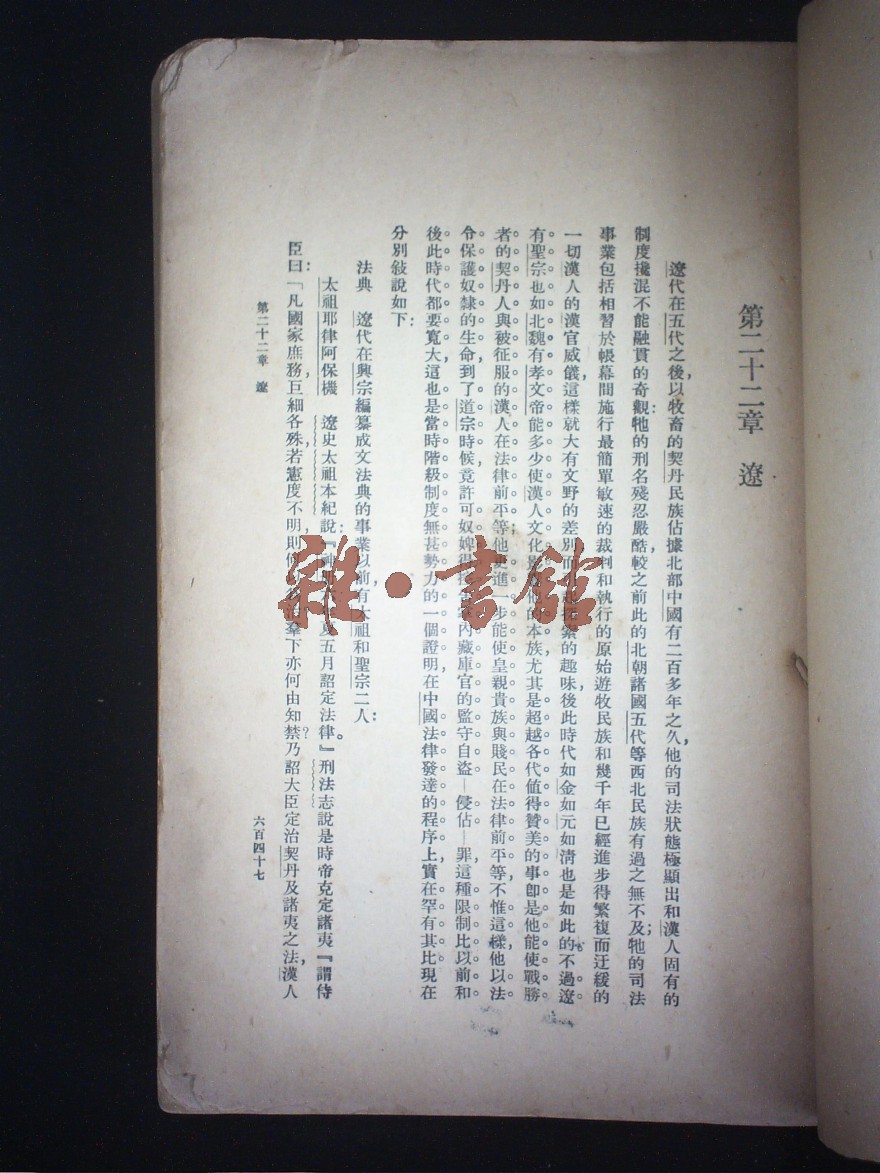 第二十二章 遼
遼代在五代之後，以牧畜的契丹民族佔據北部中國有二百多年之久，他的司法狀態極顯出和漢人固有的
制度攙混不能融貫的奇觀：牠的刑名殘忍嚴酷，較之前此的北朝諸國五代等西北民族有過之無不及；牠的司法
事業包括相習於帳幕間施行最簡單敏速的裁判和執行的原始遊牧民族和幾千年已經進步得繁複而迂緩的
一切漢人的漢官威儀，這樣就大有文野的差別，而 探索的趣味，後此時代如金如元如清也是如此的。不過遼
有聖宗也如北魏有孝文帝能多少使漢人文化 的本族，尤其是超越各代值得贊美的事，卽是他能使戰勝
者的契丹人與被征服的漢人在法律前平等；他更進一步能使皇親貴族與賤民在法律前平等，不惟這樣，他以法
令保護奴隸的生命，到了道宗時候，竟許可奴婢得 內藏庫官的監守自盜—侵佔—罪，這種限制比以前和
後此時代都要寬大，這也是當時階級制度無甚勢力的一個證明，在中國法律發達的程序上，實在罕有其比。現在
分別敍說如下：
法典 遼代在興宗編纂成文法典的事業以前，有太祖和聖宗二人：
太祖耶律阿保機 遼史太祖本紀說：『神 夏五月詔定法律。』刑法志說是時帝克定諸夷，『謂侍
臣曰：「凡國家庶務，巨細各殊，若憲度不明，則何 羣下亦何由知禁？乃詔大臣定治契丹及諸夷之法，漢人
第二十二章 遼
六百四十七
雜·書館